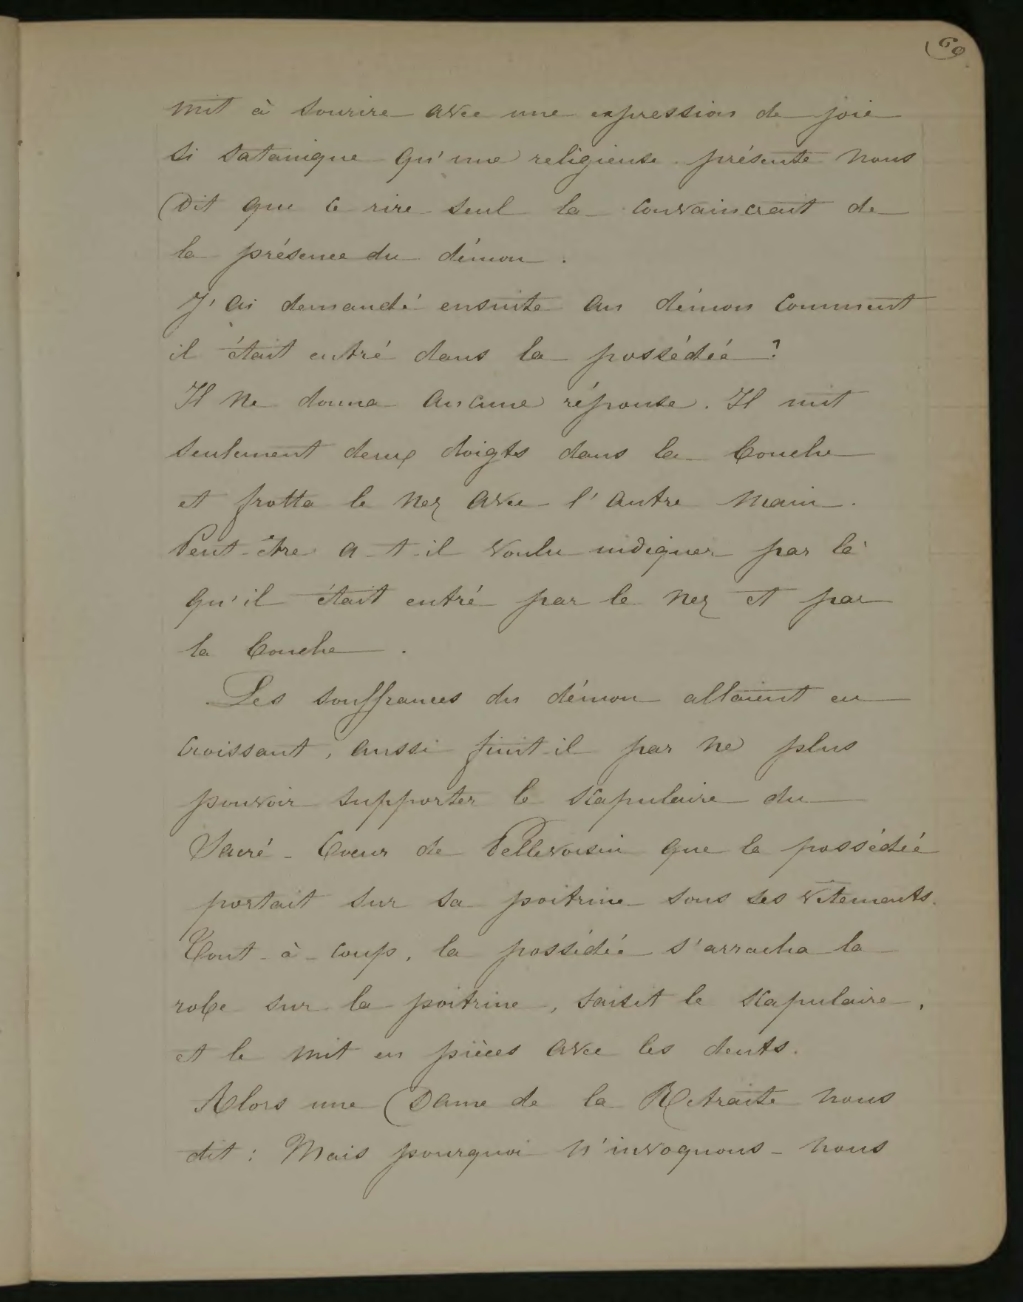 60
mit à sourire avec une expression de joie
si satanique qu'une religieuse présente nous
Dit que ce rire seul la convaincrait de
la présence du démon.
J'ai demandé ensuite au démon comment
il était entré dans la possédée ?
Il ne donna aucune réponse. Il mit
seulement deux doigts dans la bouche
et frotta le nez avec l'autre main.
Peut-être a-t-il voulu indiquer par là
qu'il était entré par le nez et par
la bouche.
Les souffrances du démon allaient en
croissant, aussi finit-il par ne plus
pouvoir supporter le scapulaire du
Sacré-Coeur de Pellevoisin que la possédée
portait sur sa poitrine sous ses vêtements.
Tout-à-coup, la possédée s'arracha la
robe sur la poitrine, saisit le scapulaire,
et le mit en pièces avec les dents.
Alors une Dame de la Retraite nous
dit : Mais pourquoi n'invoquons-nous